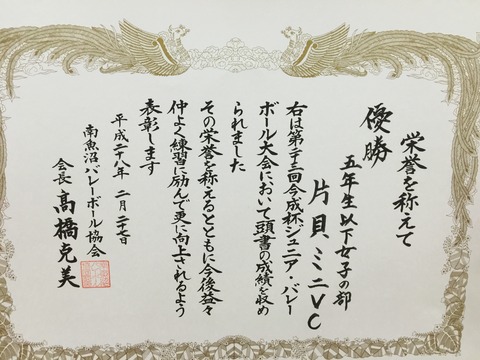 栄誉を称えて
優勝
五年生以下女子の部
片貝ミニVC
右は第二十三回合成杯ジュニア・バレー
ボール大会において頭書の成績を収め
られました
その栄誉を称えるとともに今後益々
仲よく練習に励んで更に向上されるよう
表彰します
平成二十八年 二月二十七日
南魚沼バレーボール協会
会長 髙橋克美